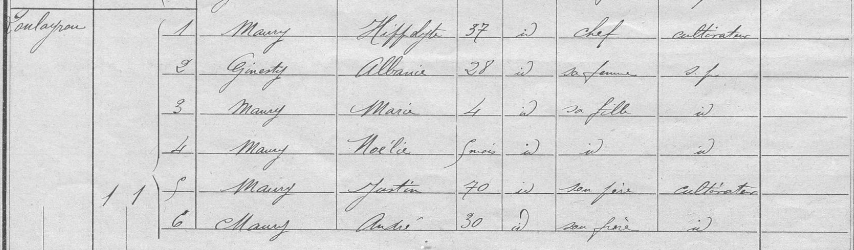 1 Maury Hippolyte 37 id chef cultivateur
2 Ginesty Albanie 28 id sa femme s.p.
3 Maury Marie 4 id sa fille id
4 Maury Noélie 5 mois id id id
1 1 5 Maury Justin 70 id son père cultivateur
6 Maury André 30 id son frère id